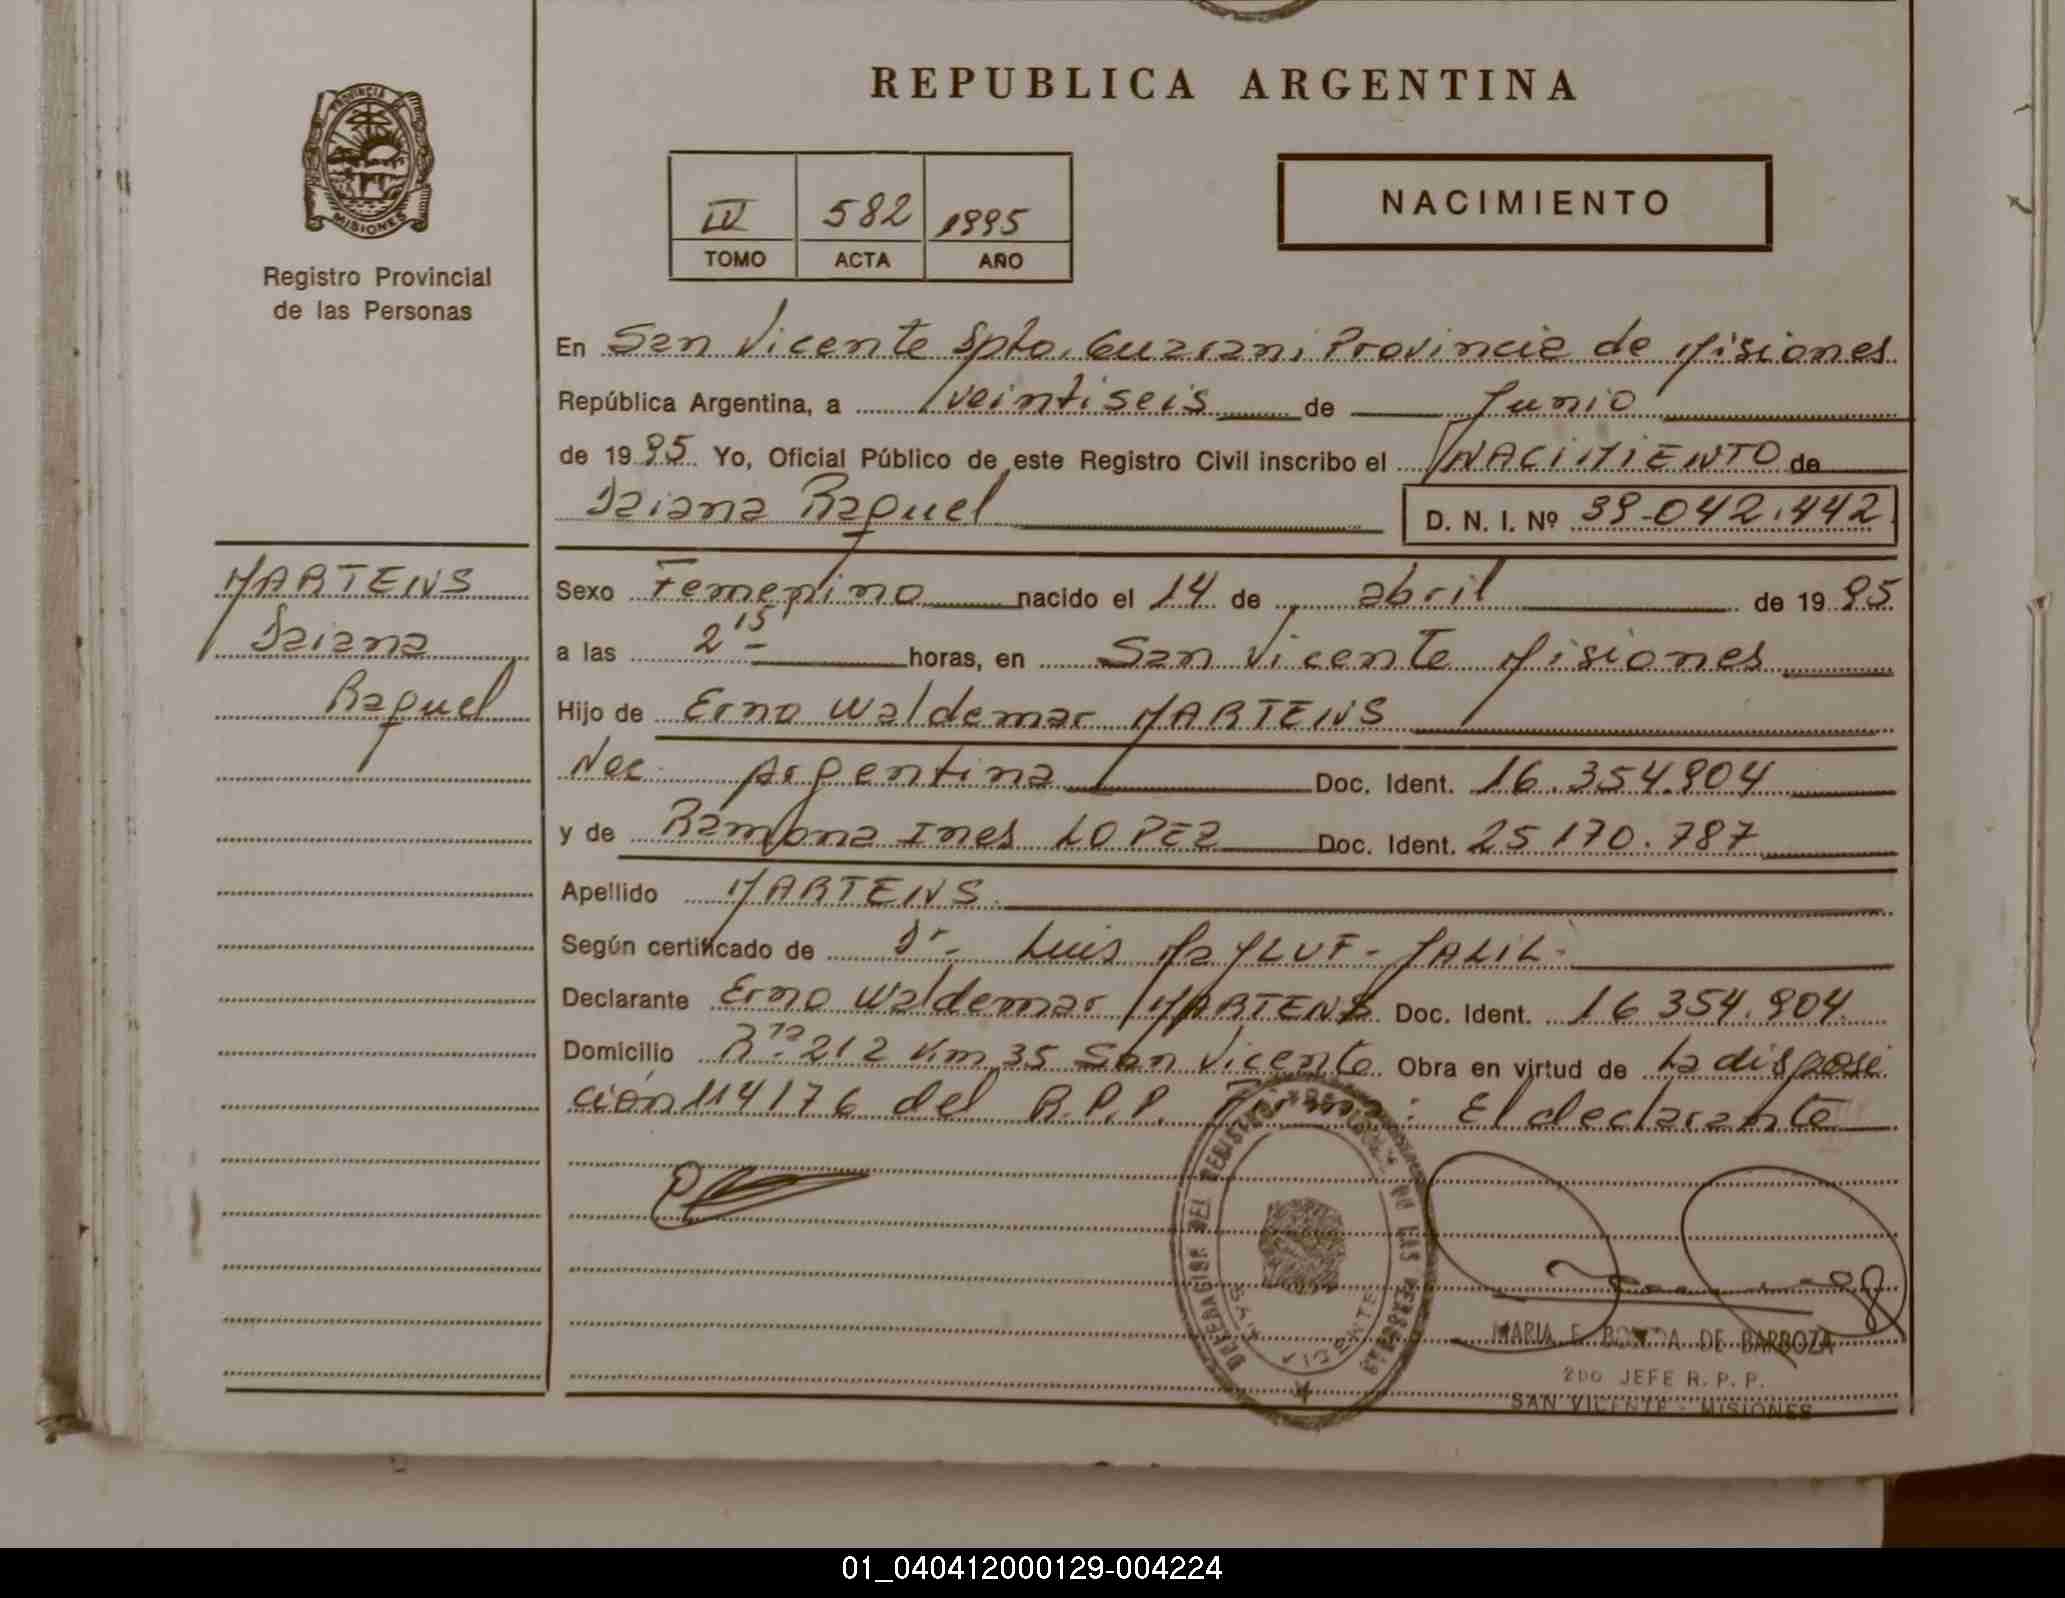 REPUBLICA ARGENTINA
PROVINCIA DE
MISIONES
Registro Provincial
de las Personas
IV 582 1995
TOMO ACTA AÑO
NACIMIENTO
En San Vicente Dpto. Guarani Provincia de Misiones
República Argentina, a veintiseis de Junio
de 1995 Yo, Oficial Público de este Registro Civil inscribo el NACIMIENTO de
Daiana Raquel D. N. I. Nº 39.042.442
MARTENS
Daiana
Raquel
Sexo Femenino nacido el 14 de abril de 1995
a las 2 15 horas, en San Vicente Misiones
Hijo de Erno Waldemar MARTENS
Nac. Argentina Doc. Ident. 16.354.904
y de Ramona Ines LOPEZ Doc. Ident. 25 170.787
Apellido MARTENS
Según certificado de Dr. Luis JALIL
Declarante Erno Waldemar MARTENS Doc. Ident. 16 354.904
Domicilio Rta. 212 Km 35 San Vicente Obra en virtud de La disposi
ción 114176 del R.P.P. Firma: El declarante
DELEGACION DEL REGISTRO PROVINCIAL DE LAS PERSONAS
SAN VICENTE
MARIA E. DE BARBOZA
2DO JEFE R. P. P.
SAN VICENTE - MISIONES
01_040412000129-004224